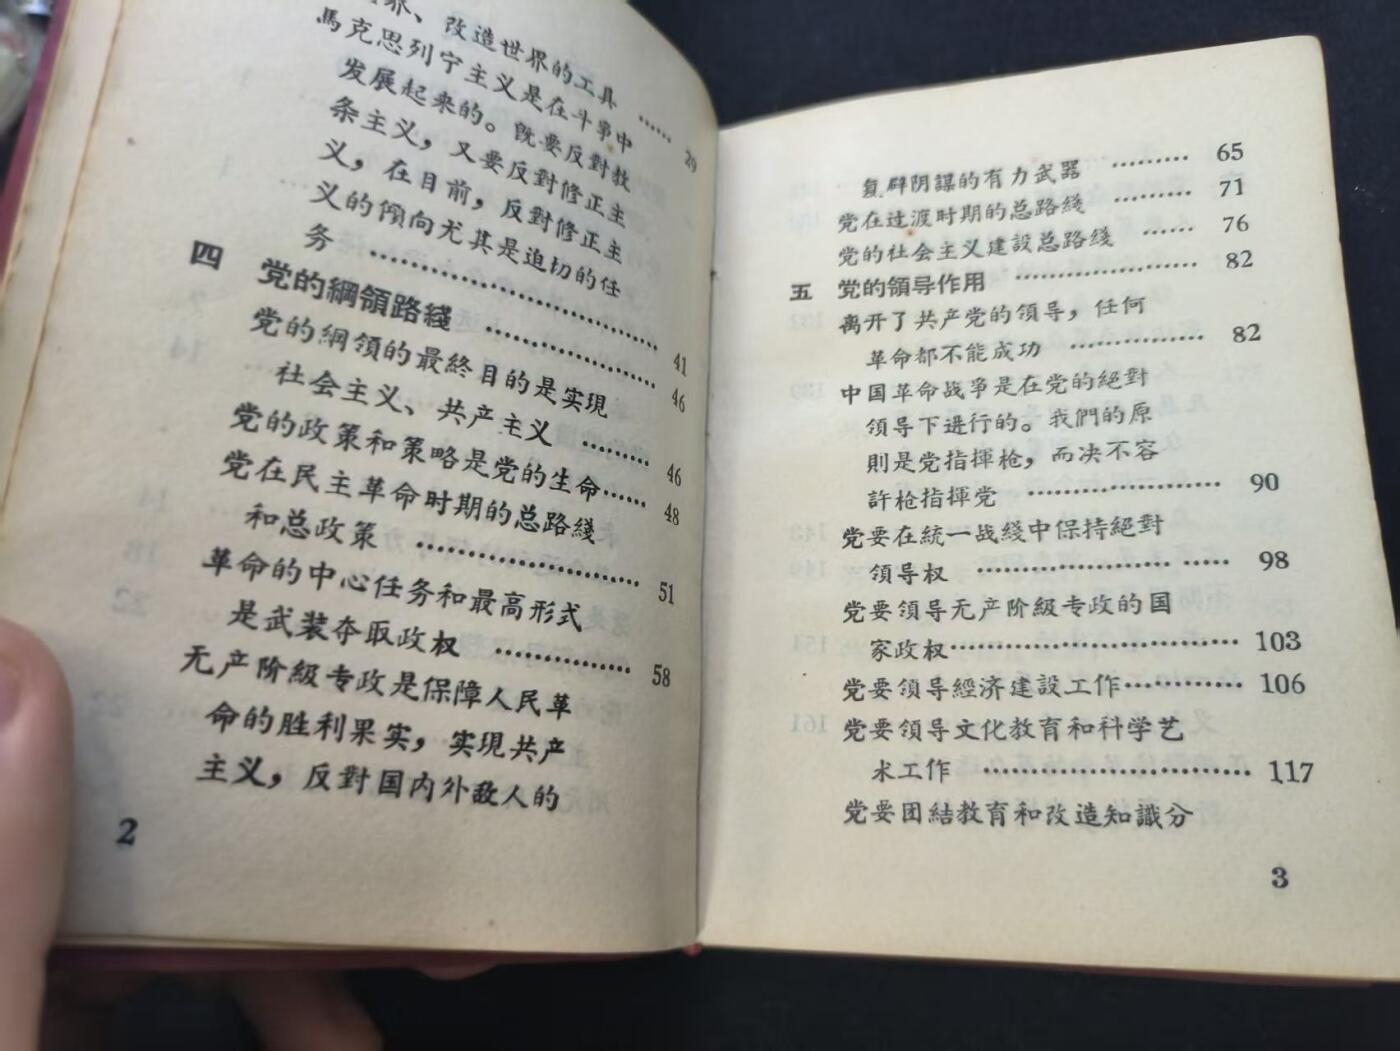 界、改造世界的工具 …… 29
馬克思列宁主义是在斗爭中
发展起来的。旣要反對教
条主义，又要反對修正主
义，在目前，反對修正主
义的傾向尤其是迫切的任
务 …………………… 41
四 党的綱領路綫 ………………… 46
党的綱領的最終目的是实現
社会主义、共产主义 ……… 46
党的政策和策略是党的生命…… 48
党在民主革命时期的总路綫
和总政策 …………………… 51
革命的中心任务和最高形式
是武装夺取政权 …………… 58
无产阶級专政是保障人民革
命的胜利果实，实現共产
主义，反對国内外敌人的
2
复辟阴謀的有力武器 ……… 65
党在过渡时期的总路綫 ……… 71
党的社会主义建設总路綫 …… 76
五 党的領导作用 ………………… 82
离开了共产党的領导，任何
革命都不能成功 …………… 82
中国革命战爭是在党的絕對
領导下进行的。我們的原
則是党指揮枪，而决不容
許枪指揮党 ………………… 90
党要在統一战綫中保持絕對
領导权 ………………… …… 98
党要領导无产阶級专政的国
家政权………………………… 103
党要領导經济建設工作………… 106
党要領导文化教育和科学艺
术工作 ……………………… 117
党要团結教育和改造知識分
3